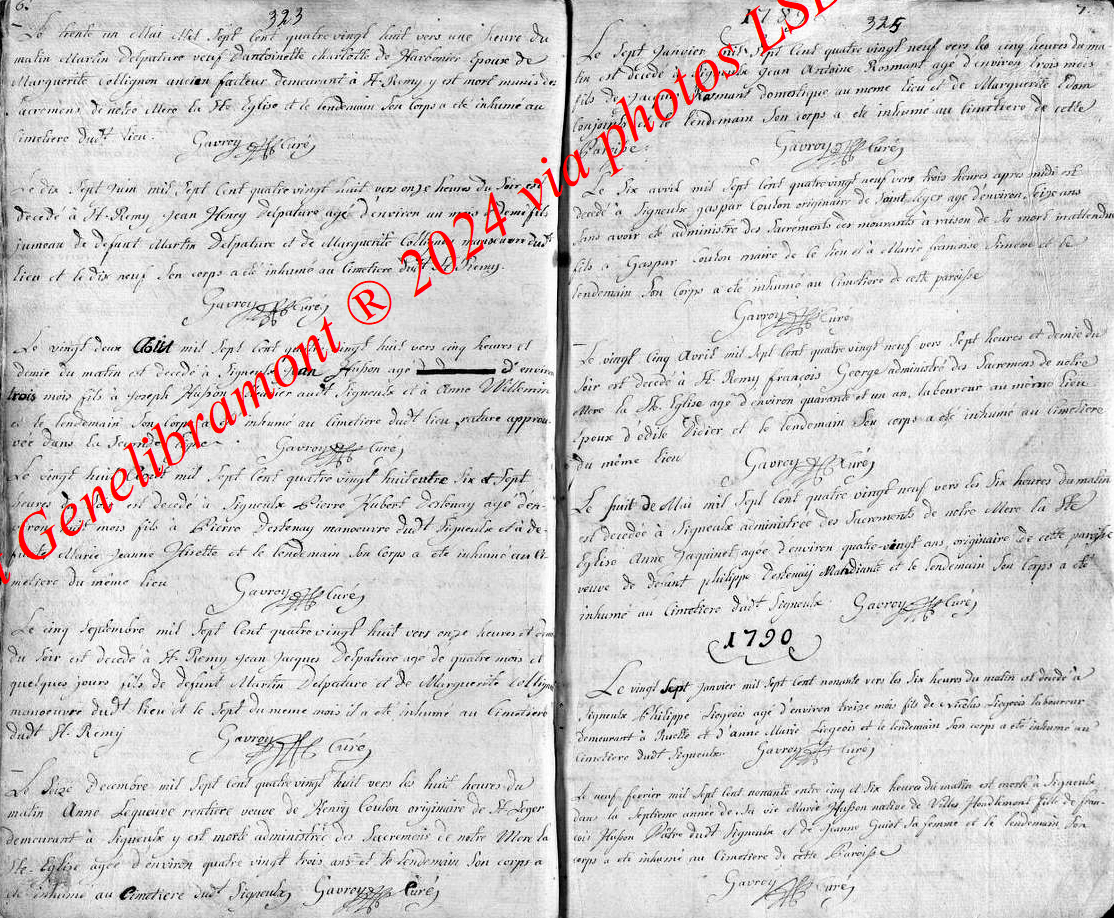 6.
323
Le trente un Mai Mil Sept Cent quatre vingt huit vers une heure du
matin Martin Delpature veuf d'antoinette charlotte de Harbonier Epoux de
Marguerite Collignon ancien facteur demeurant à St Remy y est mort muni des
sacremens de nôtre Mere la Ste Eglise et le lendemain Son Corps a été inhumé au
Cimetiere dudt Lieu.
Gavroy Curé
Le dix Sept Juin mil Sept Cent quatre vingt huit vers onze heures du Soir est
decedé à St Remy Jean Henry Delpature age d'environ un mois et demi fils
jumeau de defunt Martin Delpature et de Marguerite Collignon manoeuvre dudt
lieu et le dix neuf Son corps a été inhumé au Cimetiere dudt St Remy.
Gavroy Curé
Le vingt deux mil Sept Cent quatre vingt huit vers cinq heures et
demie du matin est decedé à Signeulx Jean Husson age d'environ
trois mois fils à Joseph Husson audt Signeulx et à Anne Willemin
et le lendemain Son Corps a été inhumé au Cimetiere dudt lieu rature approu-
vée dans la Seconde ligne.
Gavroy Curé
Le vingt huit mil Sept Cent quatre vingt huit entre Six et Sept
heures du est decedé à Signeulx Pierre Hubert Destenay agé d'en-
viron huit mois fils à Pierre Destenay manoeuvre dudt Signeulx et à de-
funte Marie Jeanne et le lendemain Son Corps a été inhumé au Ci-
metiere du même lieu
Gavroy Curé
Le cinq Septembre mil Sept Cent quatre vingt huit vers onze heures et demi
du Soir est decedé à St Remy Jean Jacques Delpature agé de quatre mois et
quelques jours fils de defunt Martin Delpature et de Marguerite Collignon
manoeuvre dudt lieu et le Sept du meme mois il a été inhumé au Cimetiere
dudt St Remy
Gavroy Curé
Le Seize decembre mil Sept Cent quatre vingt huit vers les huit heures du
matin Anne Lequeux rentiere veuve de Henry Coulon originaire de St Leger
demeurant à Signeulx y est morte administrée des Sacremens de notre Mere la
Ste Eglise agée d'environ quatre vingt trois ans et le lendemain Son corps a
été inhumé au Cimetiere dudt Signeulx
Gavroy Curé
178
325
7.
Le Sept Janvier mil Sept Cent quatre vingt neuf vers les cinq heures du ma-
tin est decedé à Signeulx Jean Antoine Rosmant age d'environ trois mois
fils de Jacque Rosmant domestique au meme lieu et de Marguerite
conjoints et le lendemain Son corps a été inhumé au Cimetiere de cette
Paroisse.
Gavroy Curé
Le Six avril mil Sept Cent quatre vingt neuf vers trois heures apres midi est
decedé à Signeulx gaspar Coulon originaire de Saint Leger age d'environ Seize ans
Sans avoir été administré des Sacrements des mourants a raison de Sa mort inattendue
fils à Gaspar Coulon maire de ce lieu et à Marie francoise Simone et le
lendemain Son Corps a été inhumé au Cimetiere de cette paroisse
Gavroy Curé
Le vingt Cinq Avril mil Sept Cent quatre vingt neuf vers Sept heures et demie du
Soir est decedé à St Remy françois George administré des Sacremens de notre
Mere la Ste Eglise agé d'environ quarante et un an, laboureur au même Lieu
Epoux d'odile Didier et le lendemain Son corps a été inhumé au Cimetiere
du même lieu
Gavroy Curé
Le huit de Mai mil Sept Cent quatre vingt neuf vers les Six heures du matin
est decedée à Signeulx administrée des Sacrements de notre Mere la Ste
Eglise Anne Jaquinet agée d'environ quatre vingt ans, originaire de cette paroisse
veuve de defunt philippe Destenay Mandiante et le lendemain Son Corps a été
inhumé au Cimetiere dudt Signeulx
Gavroy Curé
1790
Le vingt Sept Janvier mil Sept Cent nonante vers les Six heures du matin est decedé à
Signeulx Philippe Liegeois agé d'environ treize mois fils de Nicolas Liegeois laboureur
demeurant à Ruelle et d'anne Marie Liegeois et le lendemain Son corps a été inhumé au
Cimetiere dudt Signeulx
Gavroy Curé
Le neuf fevrier mil Sept Cent nonante entre cinq et Six heures du matin est morte à Signeulx
dans la Septieme année de Sa vie Marie Husson native de Villers Houdlemont fille de fran-
cois Husson Pâtre dudt Signeulx et de Jeanne Guiot Sa femme et le lendemain Son
corps a été inhumé au Cimetiere de cette Paroisse
Gavroy Curé
Genelibramont ® 2024 via photos LSD